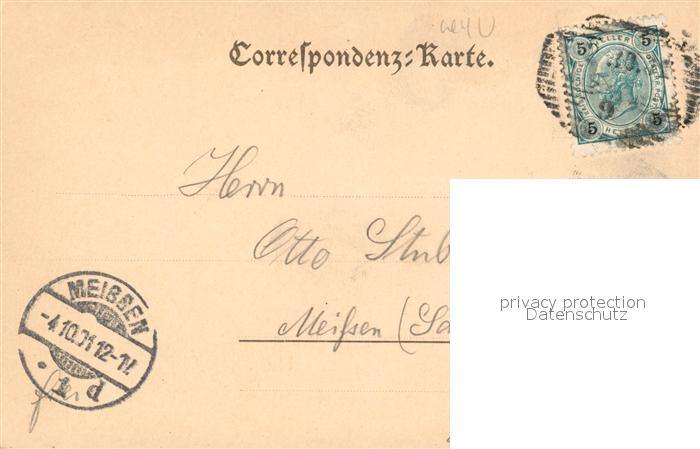 Correspondenz-Karte.
5 HELLER 5
5 5
Herrn
Otto Stub
Meißen (Sa
MEISSEN
-4.10.01.12-1V.
d
privacy protection
Datenschutz